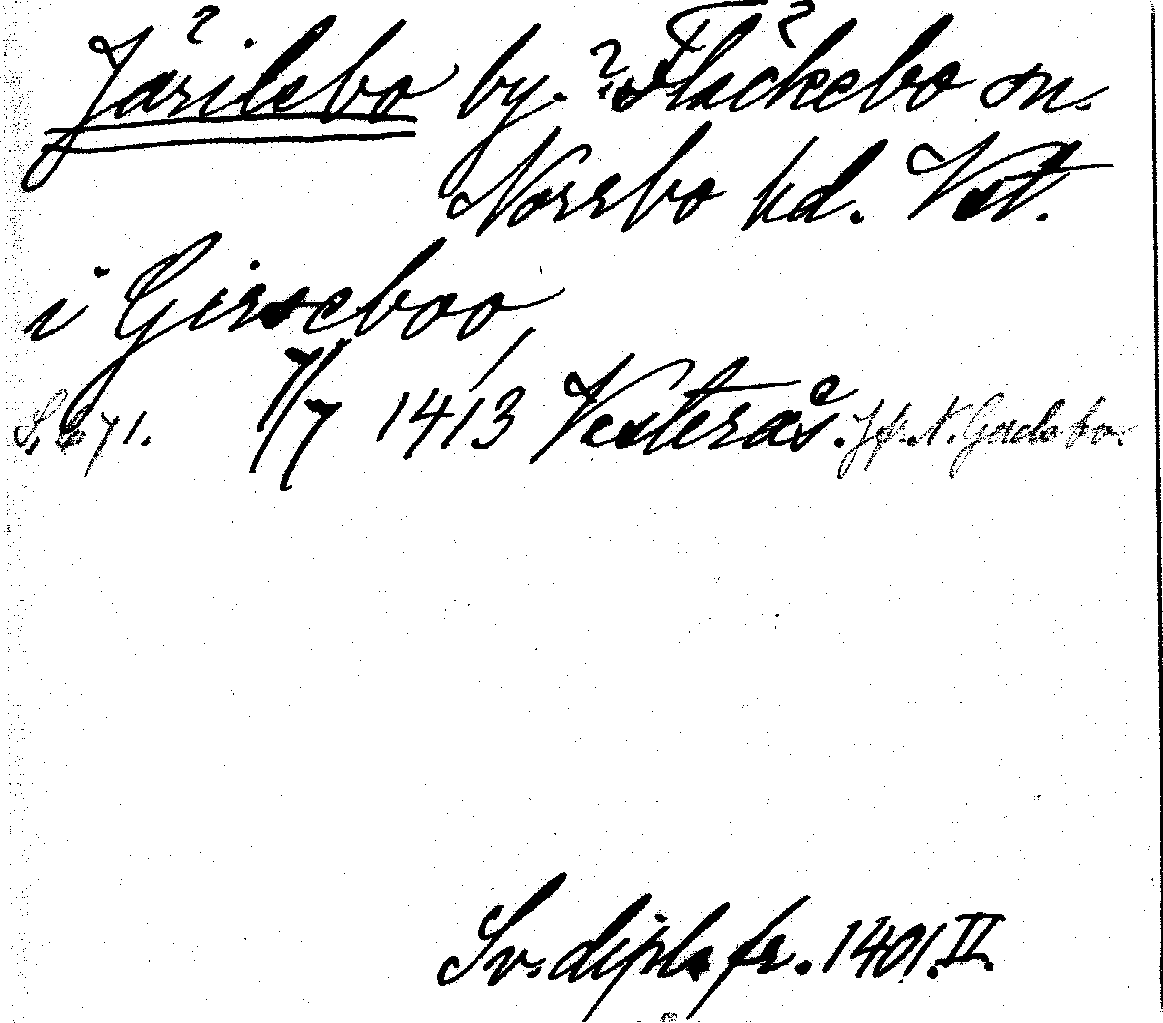 Järilebo by. ? Fläckebo sn.
Norrbo hd. Vst.
i Girseboo,
S. 671. 7/7 1413 Vesterås. Jfr N. Gerdebo.
Sv. dipl. fr. 1401. II.